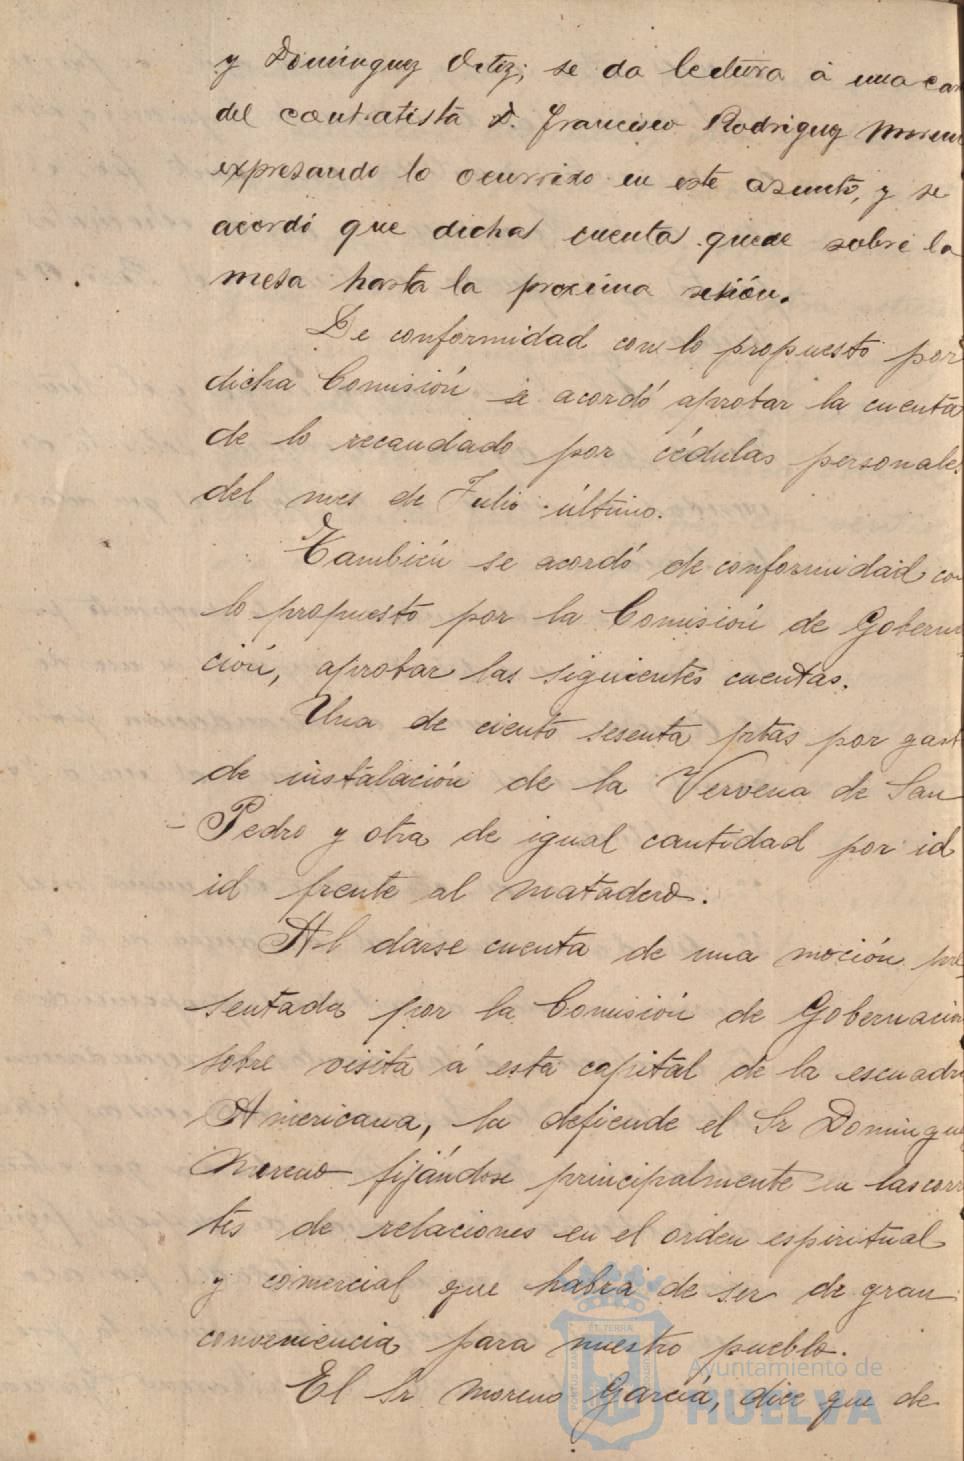 y Dominguez Ortiz; se da lectura á una car
del contratista D. Francisco Rodriguez Moreno
expresando lo ocurrido en este asunto, y se
acordó que dicha cuenta quede sobre la
mesa hasta la proxima sesión.
De conformidad con lo propuesto por
dicha Comisión se acordó aprobar la cuenta
de lo recaudado por cédulas personales
del mes de Julio último.
También se acordó de conformidad con
lo propuesto por la Comisión de Goberna
ción, aprobar las siguientes cuentas.
Una de ciento sesenta ptas por gast
de instalación de la Vervena de San
Pedro y otra de igual cantidad por id
id frente al matadero.
Al darse cuenta de una moción pre
sentada por la Comisión de Gobernación
sobre visita á esta capital de la escuadra
Americana, la defiende el Sr Dominguez
Moreno fijándose principalmente en las corr
tes de relaciones en el orden espiritual
y comercial que habrá de ser de gran
conveniencia para nuestro pueblo.
El Sr Moreno García, dice que de
Ayuntamiento de
HUELVA